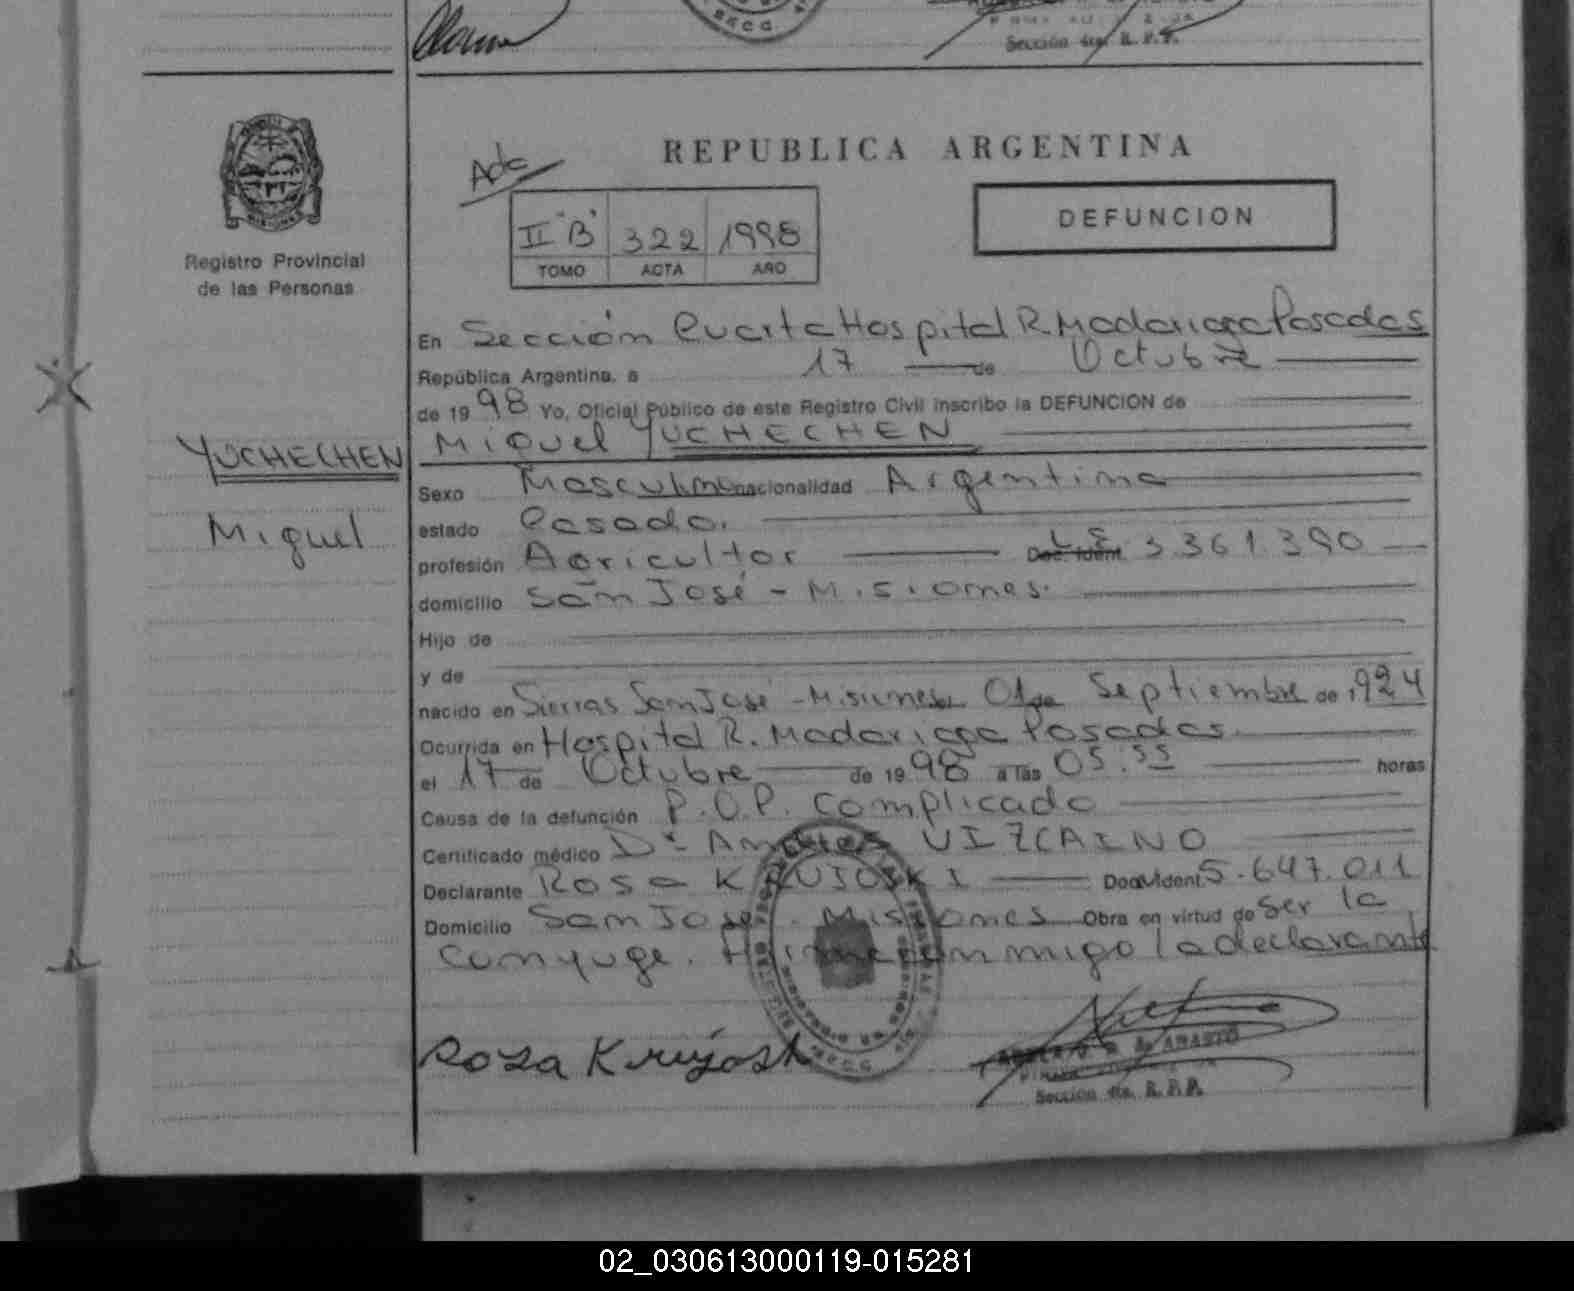 Sección 4ta. R.P.P.
REPUBLICA ARGENTINA
DEFUNCION
II "B" 322 1998
TOMO ACTA AÑO
Registro Provincial
de las Personas
En Sección Cuarta Hospital R. Madariaga Posadas
República Argentina, a 17 de Octubre
de 1998 Yo, Oficial Público de este Registro Civil inscribo la DEFUNCION de
Miguel YUCHECHEN
YUCHECHEN
Miguel
Sexo Masculino nacionalidad Argentina
estado Casado.
profesión Agricultor Doc. Ident. L.E. 3.361.390
domicilio San José - Misiones.
Hijo de
y de
nacido en Sierras San José - Misiones el 01 de Septiembre de 1924
Ocurrida en Hospital R. Madariaga Posadas
el 17 de Octubre de 1998 a las 05.55 horas
Causa de la defunción P.O.P. Complicado
Certificado médico Dr. Andres VIZCAINO
Declarante Rosa KRUJOSKI Doc. Ident. 5.647.011
Domicilio San José - Misiones Obra en virtud de Ser la
Conyuge. Firma conmigo la declarante
Rosa Krujoski
Sección 4ta. R.P.P.
02_030613000119-015281